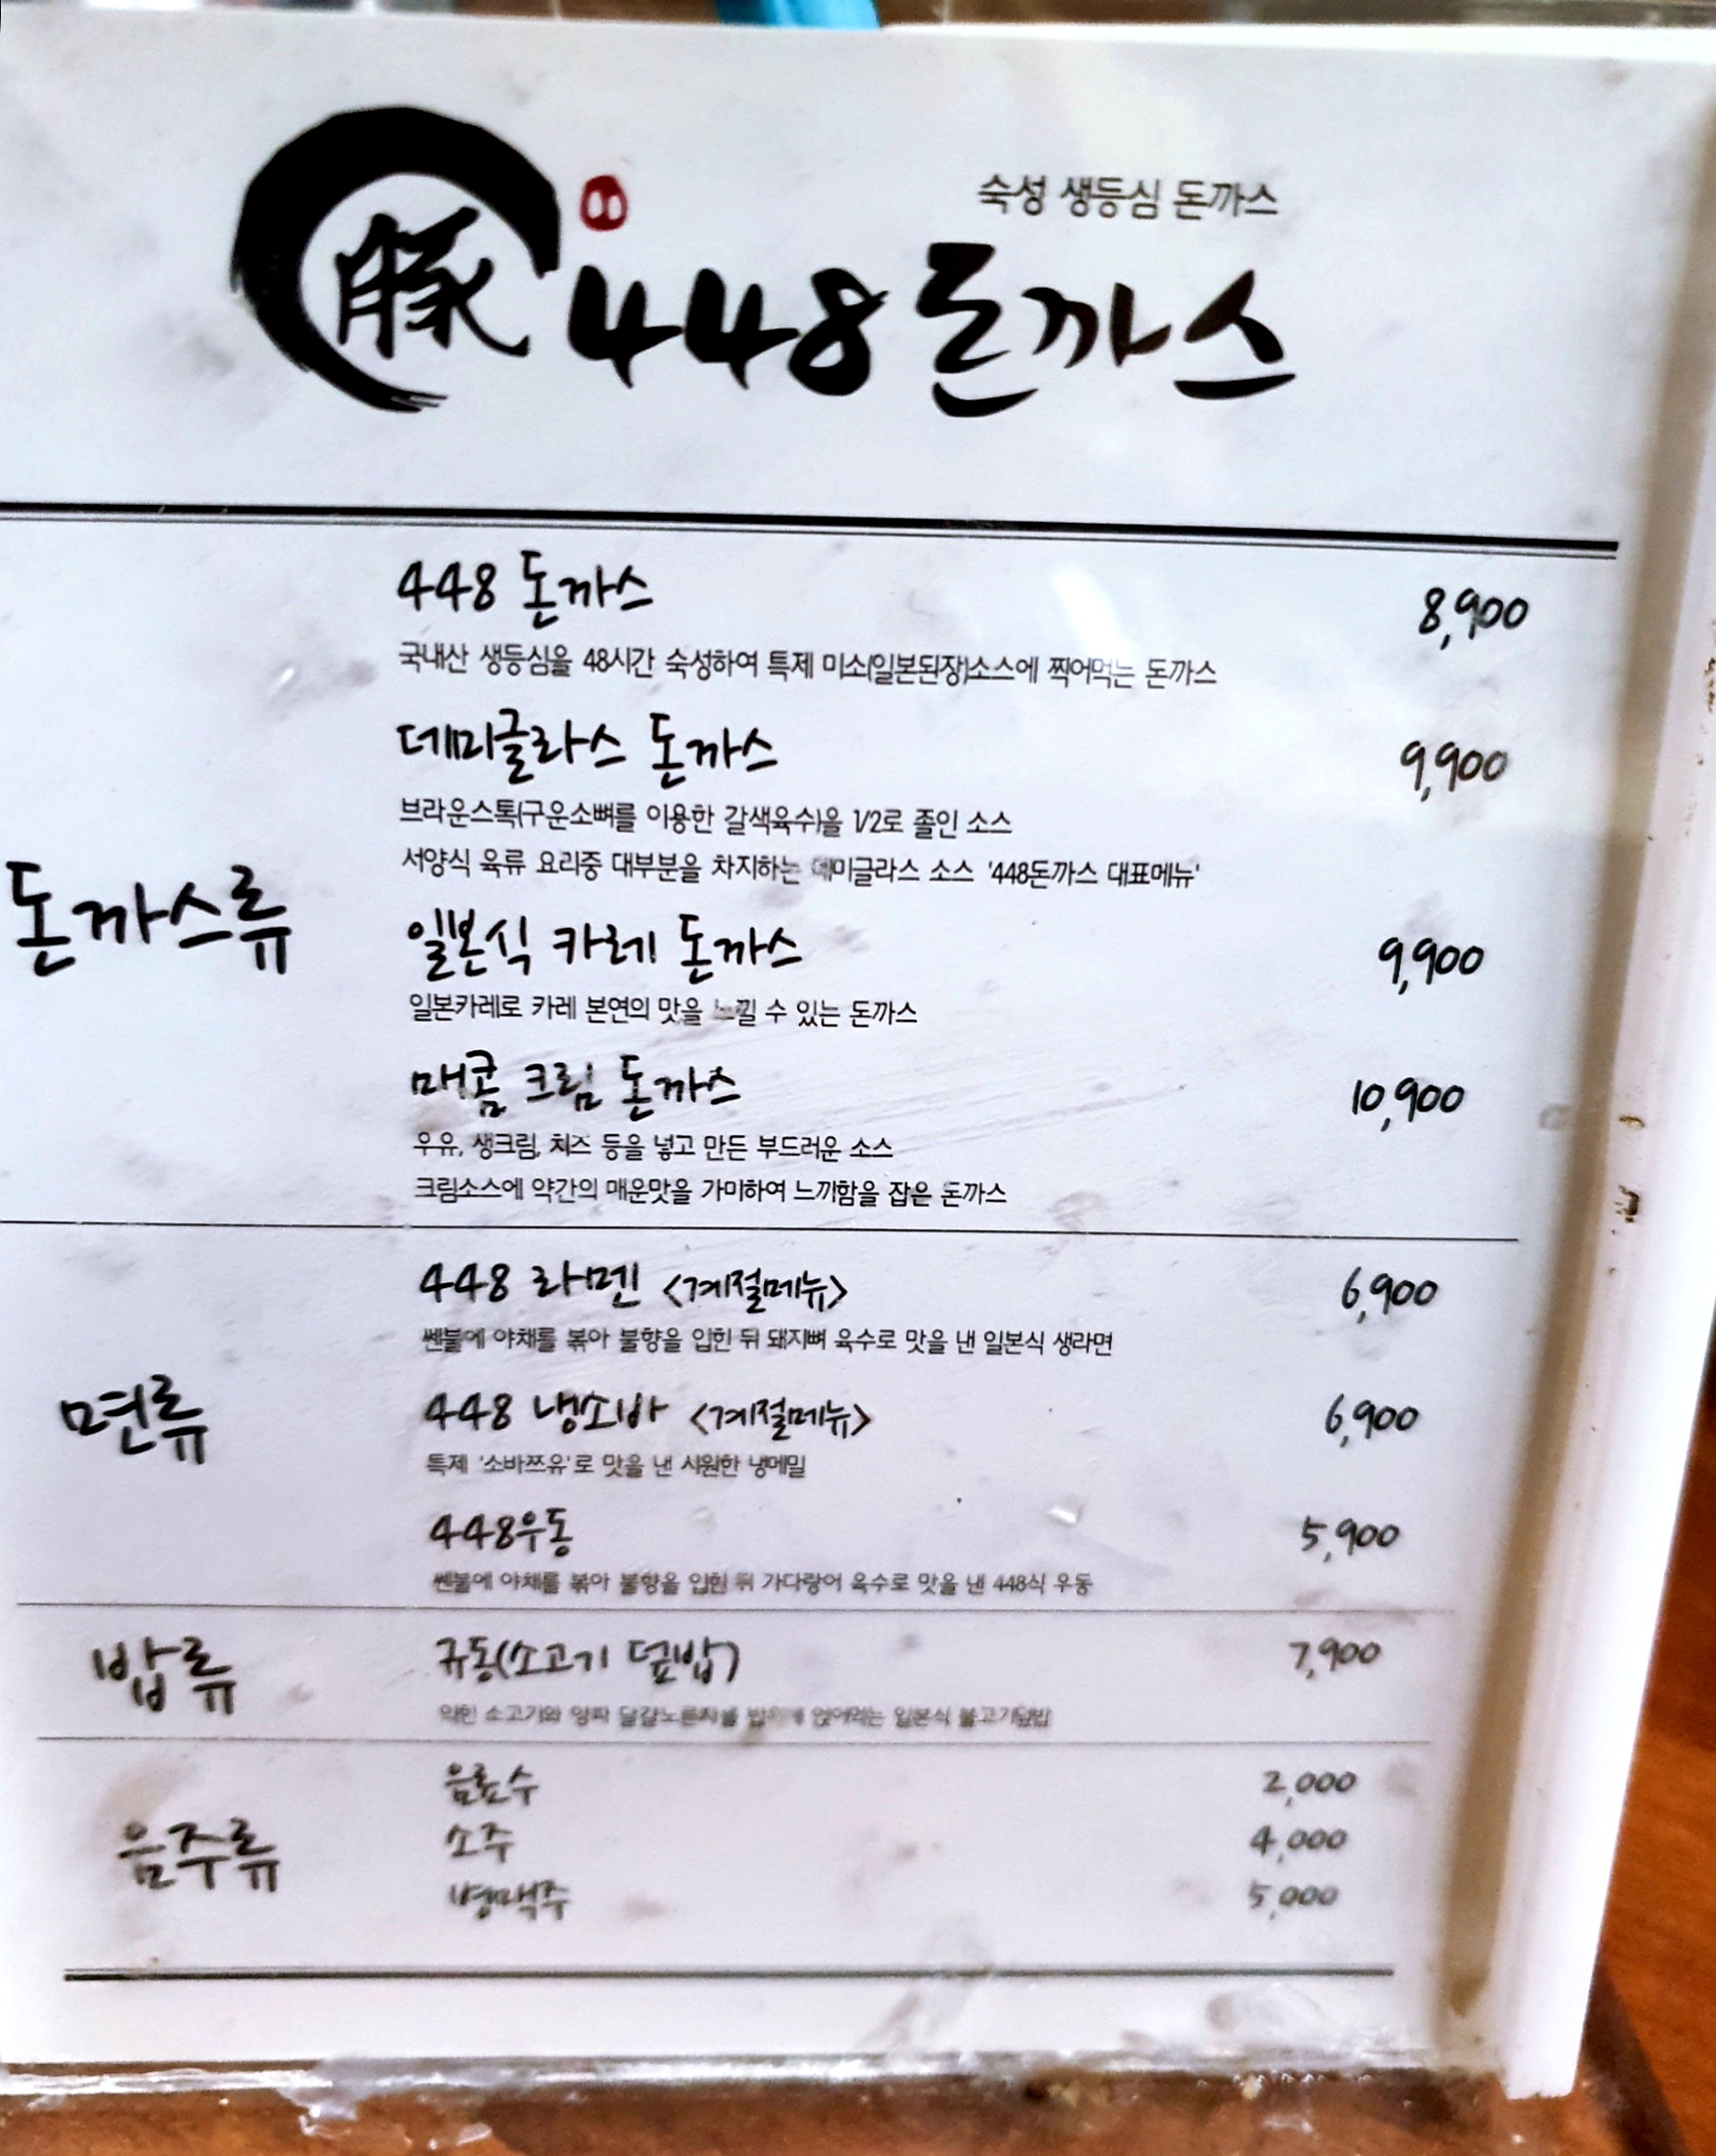 豚
숙성 생등심 돈까스
448 돈까스
돈까스류
448 돈까스 8,900
국내산 생등심을 48시간 숙성하여 특제 미소(일본된장)소스에 찍어먹는 돈까스
데미글라스 돈까스 9,900
브라운스톡(구운소뼈를 이용한 갈색육수)을 1/2로 졸인 소스
서양식 육류 요리중 대부분을 차지하는 데미글라스 소스 '448돈까스 대표메뉴'
일본식 카레 돈까스 9,900
일본카레로 카레 본연의 맛을 느낄 수 있는 돈까스
매콤 크림 돈까스 10,900
우유, 생크림, 치즈 등을 넣고 만든 부드러운 소스
크림소스에 약간의 매운맛을 가미하여 느끼함을 잡은 돈까스
면류
448 라멘 <계절메뉴> 6,900
쎈불에 야채를 볶아 불향을 입힌 뒤 돼지뼈 육수로 맛을 낸 일본식 생라면
448 냉소바 <계절메뉴> 6,900
특제 '소바쯔유'로 맛을 낸 시원한 냉메밀
448우동 5,900
쎈불에 야채를 볶아 불향을 입힌 뒤 가다랑어 육수로 맛을 낸 448식 우동
밥류
규동(소고기 덮밥) 7,900
소고기와 양파 달걀노른자를 밥위에 얹어먹는 일본식 불고기덮밥
음주류
음료수 2,000
소주 4,000
병맥주 5,000